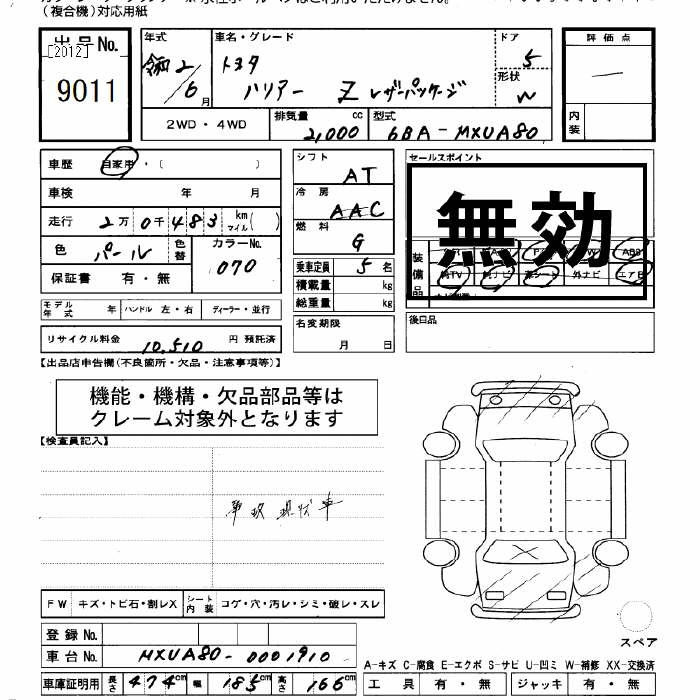 （複合機）対応用紙
出品No.
[2012]
9011
年式
令和2/6月
車名・グレード
トヨタ
ハリアー Z レザーパッケージ
ドア
5
形状
W
評価点
内装
2WD・4WD
排気量 2,000 cc
型式 6BA-MXUA80
車歴 自家用・( )
車検 年 月
走行 2万0千483 km マイル( )
色 パール 色替
カラーNo. 070
保証書 有・無
モデル年式 年 ハンドル 左・右 ディーラー・並行
リサイクル料金 10,510 円 預託済
シフト AT
冷房 AAC
燃料 G
乗車定員 5 名
積載量 kg
総重量 kg
名変期限
月 日
セールスポイント
無効
装備品
外ナビ
後日品
【出品店申告欄(不良箇所・欠品・注意事項等)】
機能・機構・欠品部品等は
クレーム対象外となります
【検査員記入】
事故現状車
FW キズ・トビ石・割レX シート内装 コゲ・穴・汚レ・シミ・破レ・スレ
登録No.
車台No. MXUA80-0001910
車庫証明用 長さ 474cm 幅 185cm 高さ 166cm
スペア
A-キズ C-腐食 E-エクボ S-サビ U-凹ミ W-補修 XX-交換済
工具 有・無 ジャッキ 有・無